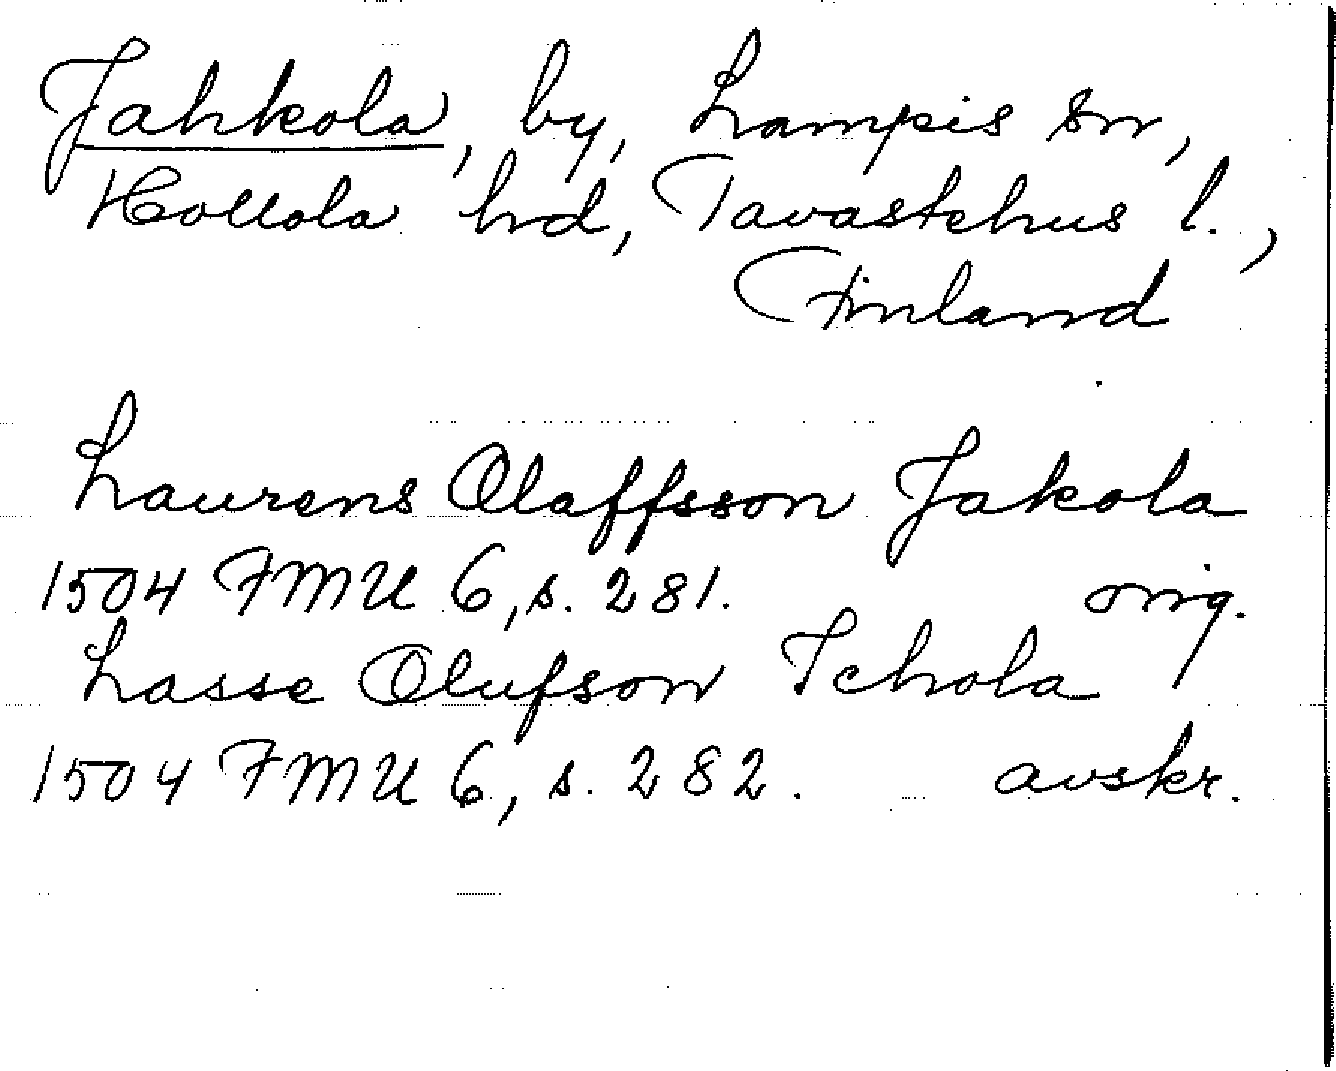 Jahkola, by, Lampis sn,
Hollola hd, Tavastehus l.,
Finland
Laurens Olaffsson Jakola
1504 FMU 6, s. 281. orig.
Lasse Olufson Ichola
1504 FMU 6, s. 282. avskr.